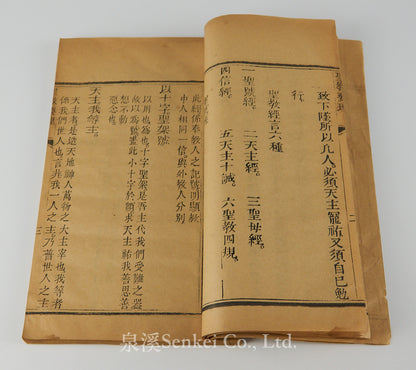 致下墜所以凡人必須天主寵祐又須自己勉
行。
聖教經言六種
一聖號經。 二天主經。 三聖母經。
四信經。 五天主十誡。 六聖教四規。
此經係奉教人之記號明顯教
中人相同一信與外教人分別
以十字聖架
以用也為也十字聖架是吾主代我們受難之器
故以為號蓋此小十字於額求天主祐我善思善
想不動
惡念也
天主我等主。
天主者是造天地神人萬物之大主宰也我等者
係我們世人也言非我一人之主乃普世人之主
三
泉溪Senkei Co., Ltd.